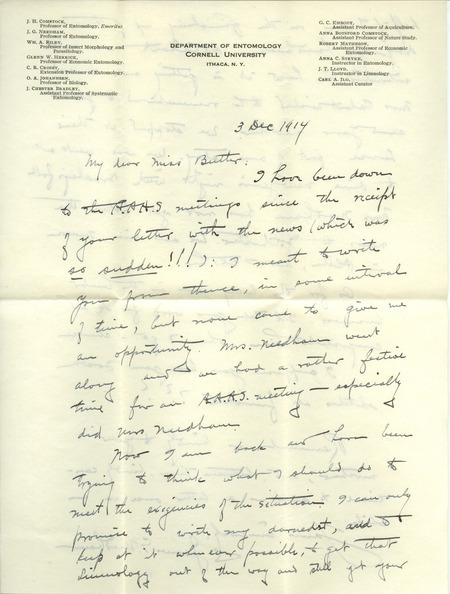 J. H. COMSTOCK,
Professor of Entomology, Emeritus
J. G. NEEDHAM,
Professor of Entomology.
WM. A. RILEY,
Professor of Insect Morphology and
Parasitology.
GLENN W. HERRICK,
Professor of Economic Entomology.
C. R. CROSBY,
Extension Professor of Entomology.
O. A. JOHANNSEN,
Professor of Biology.
J. CHESTER BRADLEY,
Assistant Professor of Systematic
Entomology.
DEPARTMENT OF ENTOMOLOGY
CORNELL UNIVERSITY
ITHACA, N. Y.
G. C. EMBODY,
Assistant Professor of Aquiculture.
ANNA BOTSFORD COMSTOCK,
Assistant Professor of Nature Study.
ROBERT MATHESON,
Assistant Professor of Economic
Entomology.
ANNA C. STRYKE,
Instructor in Entomology.
J. T. LLOYD,
Instructor in Limnology
CARL A. ILG,
Assistant Curator
3 Dec 1914
My dear Miss Butter:
I have been down
to the A.A.A.S meetings since the receipt
of your letter with the news (which was
so sudden!!!): I meant to write
you from thence, in some interval
of time, but none came to give me
an opportunity. Mrs. Needham went
along and we had a rather festive
time for an A.A.A.S. meeting—especially
did Mrs Needham.
Now I am back and have been
trying to think what I should do to
meet the exigencies of the situation. I can only
promise to work my darnedest, and to
keep at it whenever possible, to get that
limnology out of the way and still get your